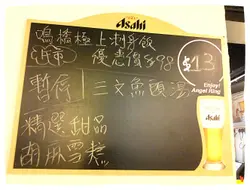 Asahi
鳴橋極上刺身飯
優惠價$98
$13
暫停
三文魚頭湯
Enjoy!
Angel Ring
Asahi
精選甜品
南瓜雪糕